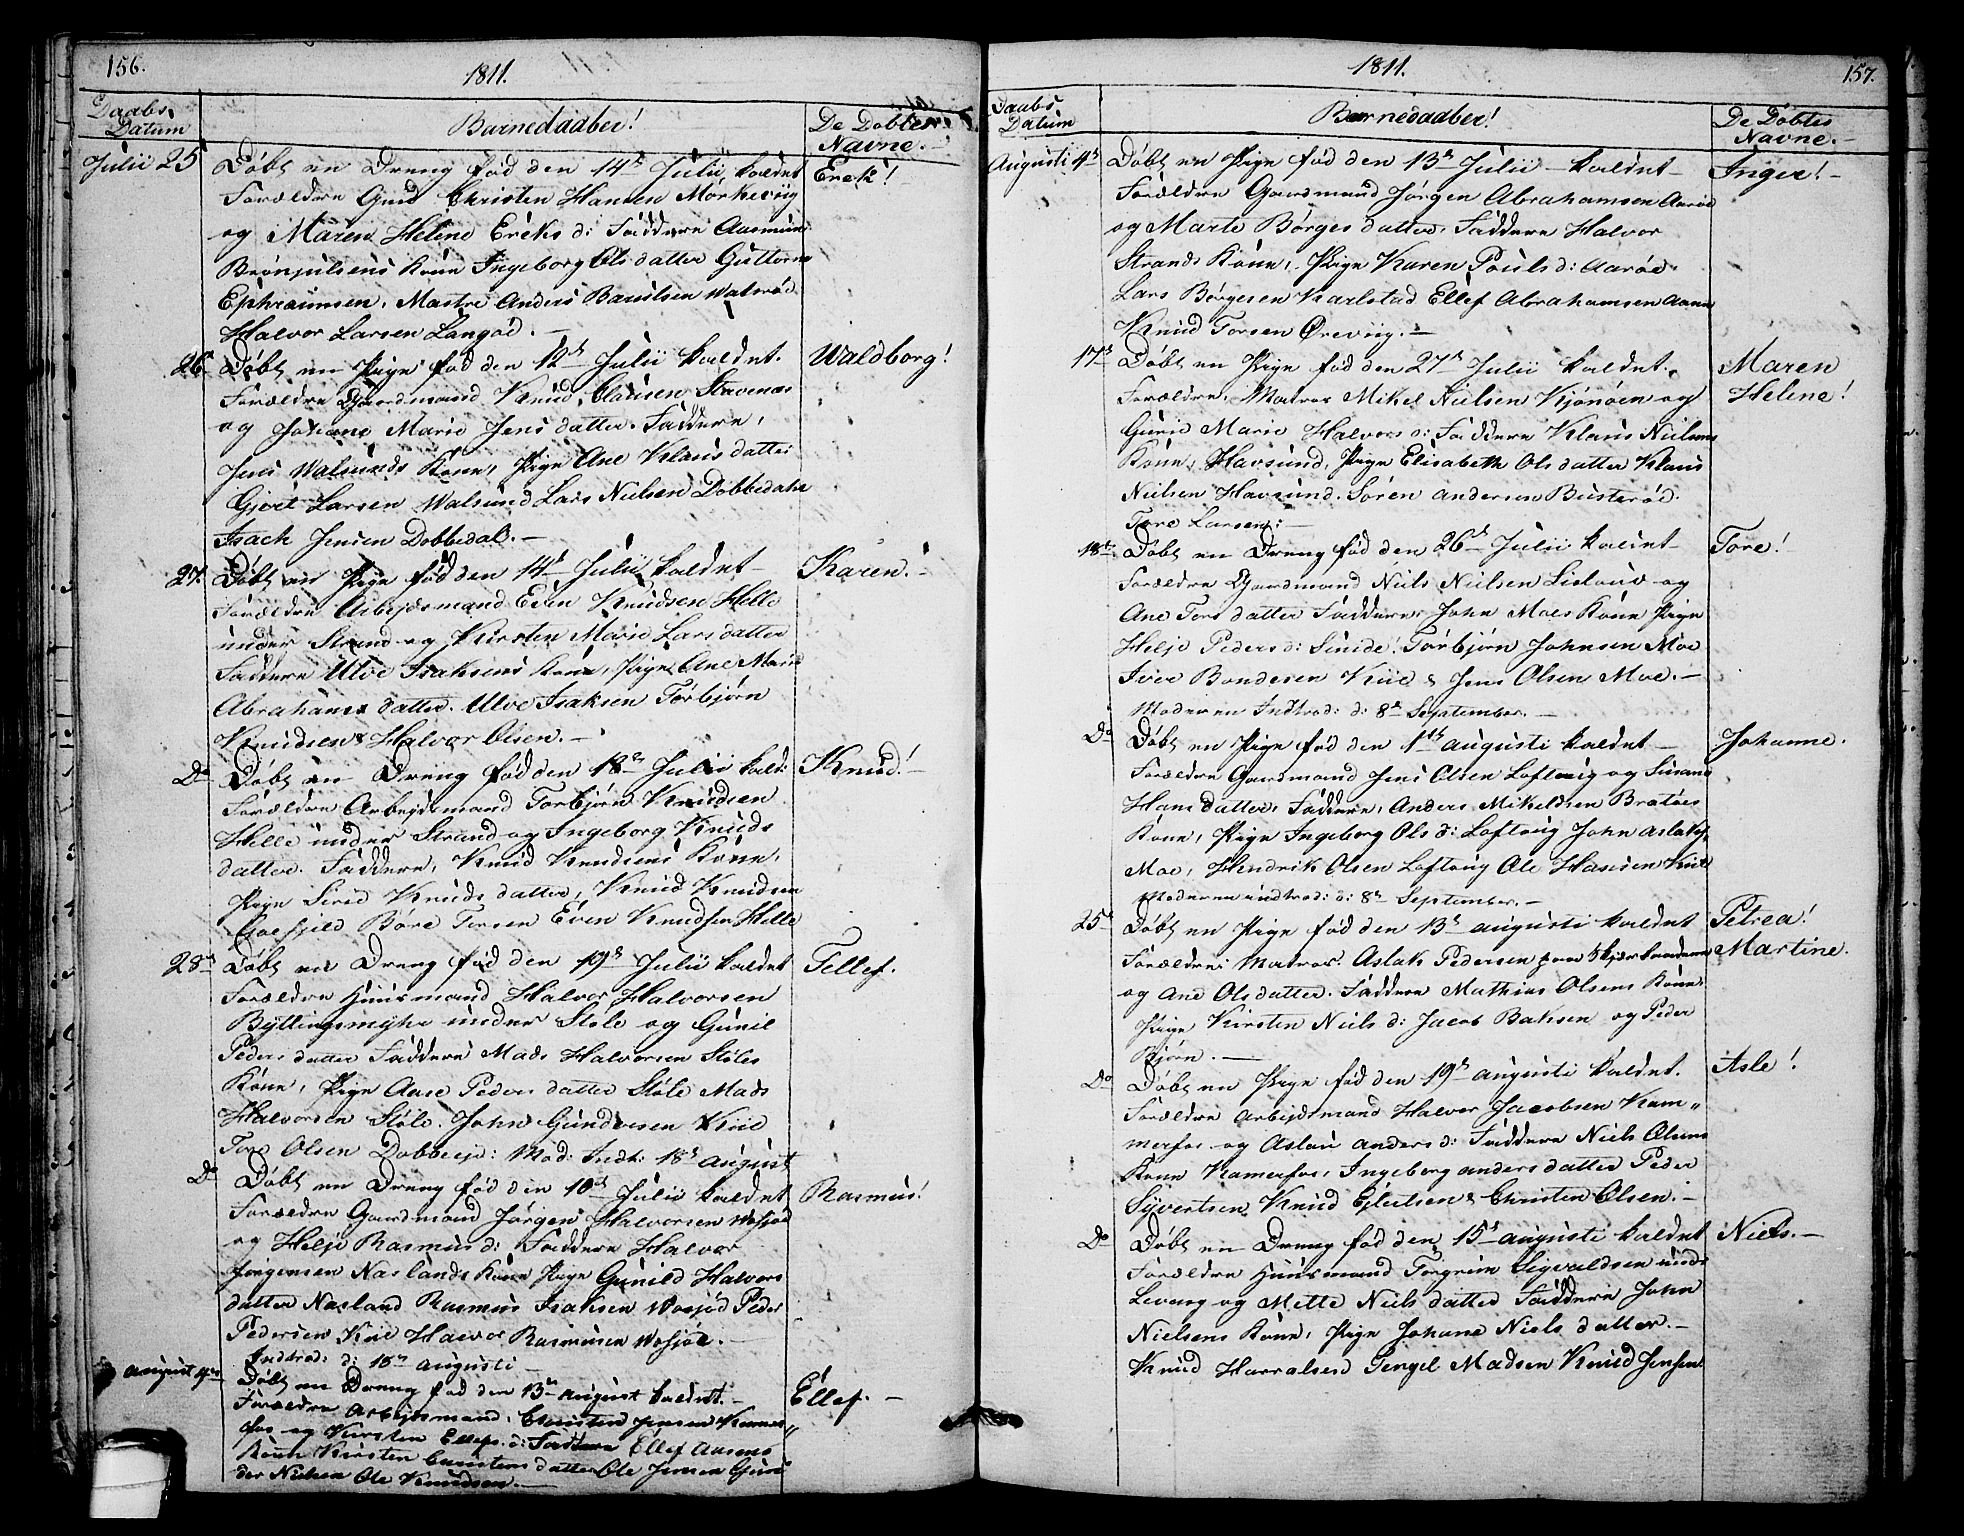 156.
1811.
Daabs Datum
Barnedaaber!
De Döbtes Navne.
Julii 25
Döbt en Dreng föd den 14de Julii kaldet
Erek!
Forældre Gmd Christen Hansen Mörkeviig
og Maren Helene Ereks d: Faddere Aasmun
Brönjulsens Kone Ingeborg Olsdatter Guttorm
Ephraimsen, Anders Barulsen Walsröd
Halvor Larsen Langöd. —
26
Döbt en Pige föd den 12de Julii kaldet.
Waldborg!
Forældre Gaardmand Knud Clausen Stavenæs
og Johane Marie Jensdatter. Faddere,
Jens Walsunds Kone, Pige Ane Klausdatter
Gjert Larsen Walsund Lars Nielsen Dobbedahl
Isach Jensen Dobbedal. —
27.
Döbt en Pige föd den 14de Julii kaldet —
Karen! —
Forældre Arbejdsmand Even Knudsen Helle
under Strand og Kirsten Marie Larsdatter
Faddere Ulve Isaksens Kone, Pige Ane Marie
Abrahamsdatter. Ulve Isaksen Torbjörn
Knudsen & Halvor Olsen. —
Do
Döbt en Dreng föd den 18de Julii kald:
Knud! —
Forældre Arbejdsmand Torbjörn Knudsen
Helle under Strand og Ingeborg Knuds
datter. Faddere, Knud Knudsens Kone,
Pige Siri Knudsdatter, Knud Knudsen
Böre Torsen Even Knudsen Helle
28de
Döbt en Dreng föd den 19de Julii kaldet
Tellef.
Forældre Huusmand Halvor Halvorsen
Byttingsmyhr under Stöle og Gunil
Pedersdatter Faddere Mads Halvorsen Stöles
Kone, Pige Aase Pedersdatter Stöle Mads
Halvorsen Stöle. John Gundersen Kiil
Tore Olsen Dobbe: Mod: Indt: 18de August
Do
Döbt en Dreng föd den 10de Julii kaldet
Rasmus!
Forældre Gaardmand Jörgen Halvorsen Wosjöd
og Helje Rasmus d: Faddere Halvor
Jörgensen Naslands Kone Pige Gunild Halvors
datter Nasland Rasmus Isaksen Wosjöd Peder
Pedersen Kiil Halvor Rasmusen Wosjöe. —
Indtræd: d: 18de Augusti —
August 4de
Döbt en Dreng föd den 13de August kaldet. —
Ellef. —
Forældre Arbejdsmand, Christen Jensen Kamer
fos og Kirsten Ellefs d: Faddere Ellef Aasens
Kone Kirsten Christensdatter Ole Jensen Gun
der Nielsen Ole Knudsen. —
1811.
157.
Daabs Datum
Barnedaaber!
De Döbtes Navne. —
Augusti 4de
Döbt en Pige föd den 13de Julii — kaldet —
Inger! —
Forældre Gaardsmand Jörgen Abrahamsen Aaröe
og Marte Börgesdatter, Faddere Halvor
Strands Kone, Pige Karen Pouls d: Aaröe
Lars Börgesen Karlstad Ellef Abrahamsen Aaröe
Knud Torsen Öreviig. —
17de
Döbt en Pige föd den 27de Julii kaldet.
Maren
Helene!
Forældre, Matros Mikel Nielsen Kjönöen og
Gurie Marie Halvors d: Faddere Klaus Nielsens
Kone, Havsund, Pige Elisabeth Olsdatter Klaus
Nielsen Havsund. Sören Andersen Busteröd.
Tore Larsen: —
18de
Döbt en Dreng föd den 26de Julii kaldet —
Tore!
Forældre Gaardmand Niels Nielsen Lislouv og
Ane Torsdatter Faddere, John Moes Kone Pige
Helje Peders d: Torbjörn Johnsen Moe
Iver Bondesen Kiil & Jens Olsen Moe. —
Moderen Indtræd: d: 8de September. —
Do
Döbt en Pige föd den 1de Augusti kaldet —
Johanne.
Forældre Gaardmand Jens Olsen Loftvig og Susane
Hansdatter, Faddere, Anders Mikelsen Bratöes
Kone, Pige Ingeborg Ols d: Loftvig John Aslaks.
Moe, Hendrik Olsen Loftvig Ole Hansen Kiil
Moderen indtræd: d: 8de September. —
25de
Döbt en Pige föd den 13de Augusti kaldet
Petrea!
Forældre; Matros. Aslak Pedersen paa
Martine.
og Ane Olsdatter. Faddere Mathias Olsens Kone
Pige Kirsten Niels d: Jacob Baksen og Peder
Björn. —
Do
Döbt en Pige föd den 19de Augusti kaldet.
Asle!
Forældre Arbejdsmand Halvor Jacobsen Kam„
merfos og Aslau Anders d: Faddere Niels Olsens
Kone Kamerfos, Ingeborg Andersdatter Peder
Syvertsen Knud Ejlertsen & Christen Olsen. —
Do
Döbt en Dreng föd den 15de Augusti kaldet
Niels. —
Forældre Huusmand Torgrim Sigvaldsen unde
Levang og Mette Nielsdatter Faddere John
Nielsens Kone, Pige Johane Nielsdatter. —
Knud Harralsen Tengel Madsen Knud Jensen